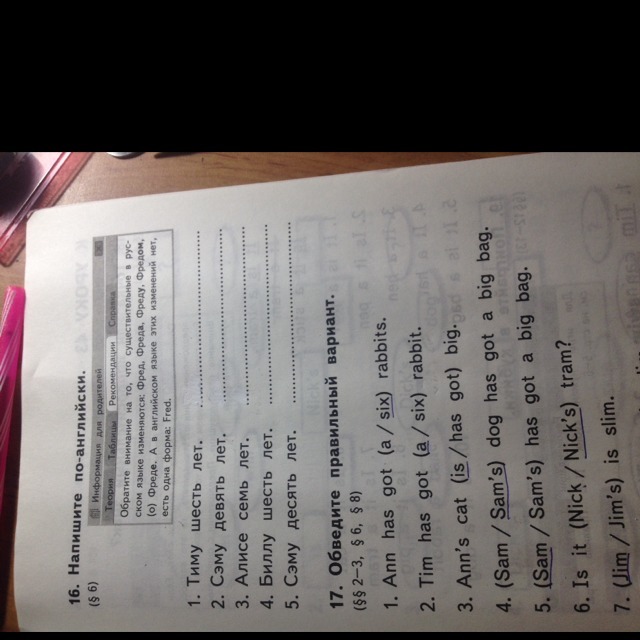 16. Напишите по-английски.
(§ 6)
Информация для родителей
Теория Таблицы Рекомендации Справка
Обратите внимание на то, что существительные в рус-
ском языке изменяются: Фред, Фреда, Фреду, Фредом,
(о) Фреде. А в английском языке этих изменений нет,
есть одна форма: Fred.
1. Тиму шесть лет. ........................
2. Сэму девять лет. ........................
3. Алисе семь лет. ........................
4. Биллу шесть лет. ........................
5. Сэму десять лет. ........................
17. Обведите правильный вариант.
(§§ 2–3, § 6, § 8)
1. Ann has got (a / six) rabbits.
2. Tim has got (a / six) rabbit.
3. Ann's cat (is / has got) big.
4. (Sam / Sam's) dog has got a big bag.
5. (Sam / Sam's) has got a big bag.
6. Is it (Nick / Nick's) tram?
7. (Jim / Jim's) is slim.